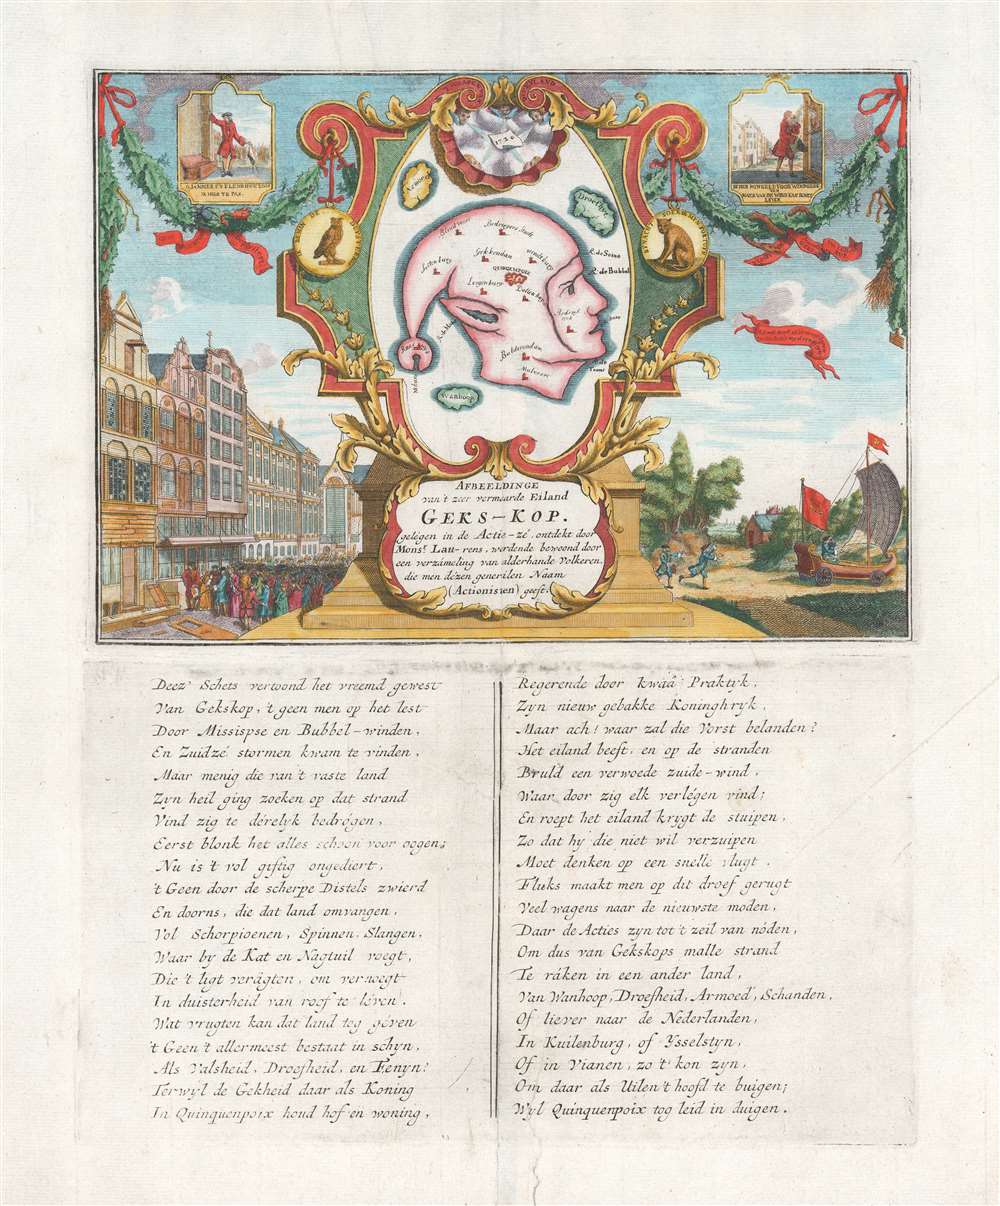 1720
Armoede
Droefhe.
Bedrogers Stadt
Gekkendam
Lestenburg
QUINQUENPOIX
Logenburg
R. de Seine
R. de Bubbel
Bulderendam
Wanhoop
AFBEELDINGE
van't zeer vermaarde Eiland
GEKS-KOP.
gelegen in de Actie-zé, ontdekt door
Monsr. Lau-rens, werdende bewoond door
een verzameling van alderhande Volkeren,
die men dézen generalen Náam
(Actionisten) geeft.
Deez' Schets vertoond het vreemd gewest
Van Gekskop, 't geen men op het lest
Door Missispse en Bubbel-winden,
En Zuidzé stormen kwam te vinden,
Maar menig die van't vaste land
Zyn heil ging zoeken op dat strand
Vind zig te dérelyk bedrógen,
Eerst blonk het alles schoon voor oogen;
Nu is 't vol giftig ongediert,
't Geen door de scherpe Distels zwierd
En doorns, die dat land omvangen,
Vol Schorpioenen, Spinnen, Slangen,
Waar by de Kat en Nagtuil voegt,
Die 't ligt verágten, om vernoegt
In duisterheid van roof te léven.
Wat vrugten kan dat land tog géven
't Geen 't allermeest bestaat in schyn,
Als Valsheid, Droefheid, en Fenyn?
Terwyl de Gekheid daar als Koning
In Quinquenpoix houd hof en woning,
Regerende door kwáá Praktyk;
Zyn nieuw gebakke Koninghryk,
Maar ach! waar zal die Vorst belanden?
Het eiland beeft, en op de stranden
Bruld een verwoede zuide-wind,
Waar door zig elk verlégen vind;
En roept het eiland krygt de stuipen,
Zo dat hy die niet wil verzuipen
Moet denken op een snelle vlugt.
Fluks maakt men op dit droef gerugt
Veel wagens naar de nieuwste moden,
Daar de Acties zyn tot 't zeil van nóden,
Om dus van Gekskops malle strand
Te ráken in een ander land,
Van Wanhoop, Droefheid, Armoed, Schanden,
Of liever naar de Nederlanden,
In Kuilenburg, of Ysselstyn,
Of in Vianen, zo 't kon zyn,
Om daar als Uilen 't hoofd te buigen;
Wyl Quinquenpoix tog leid in duigen.